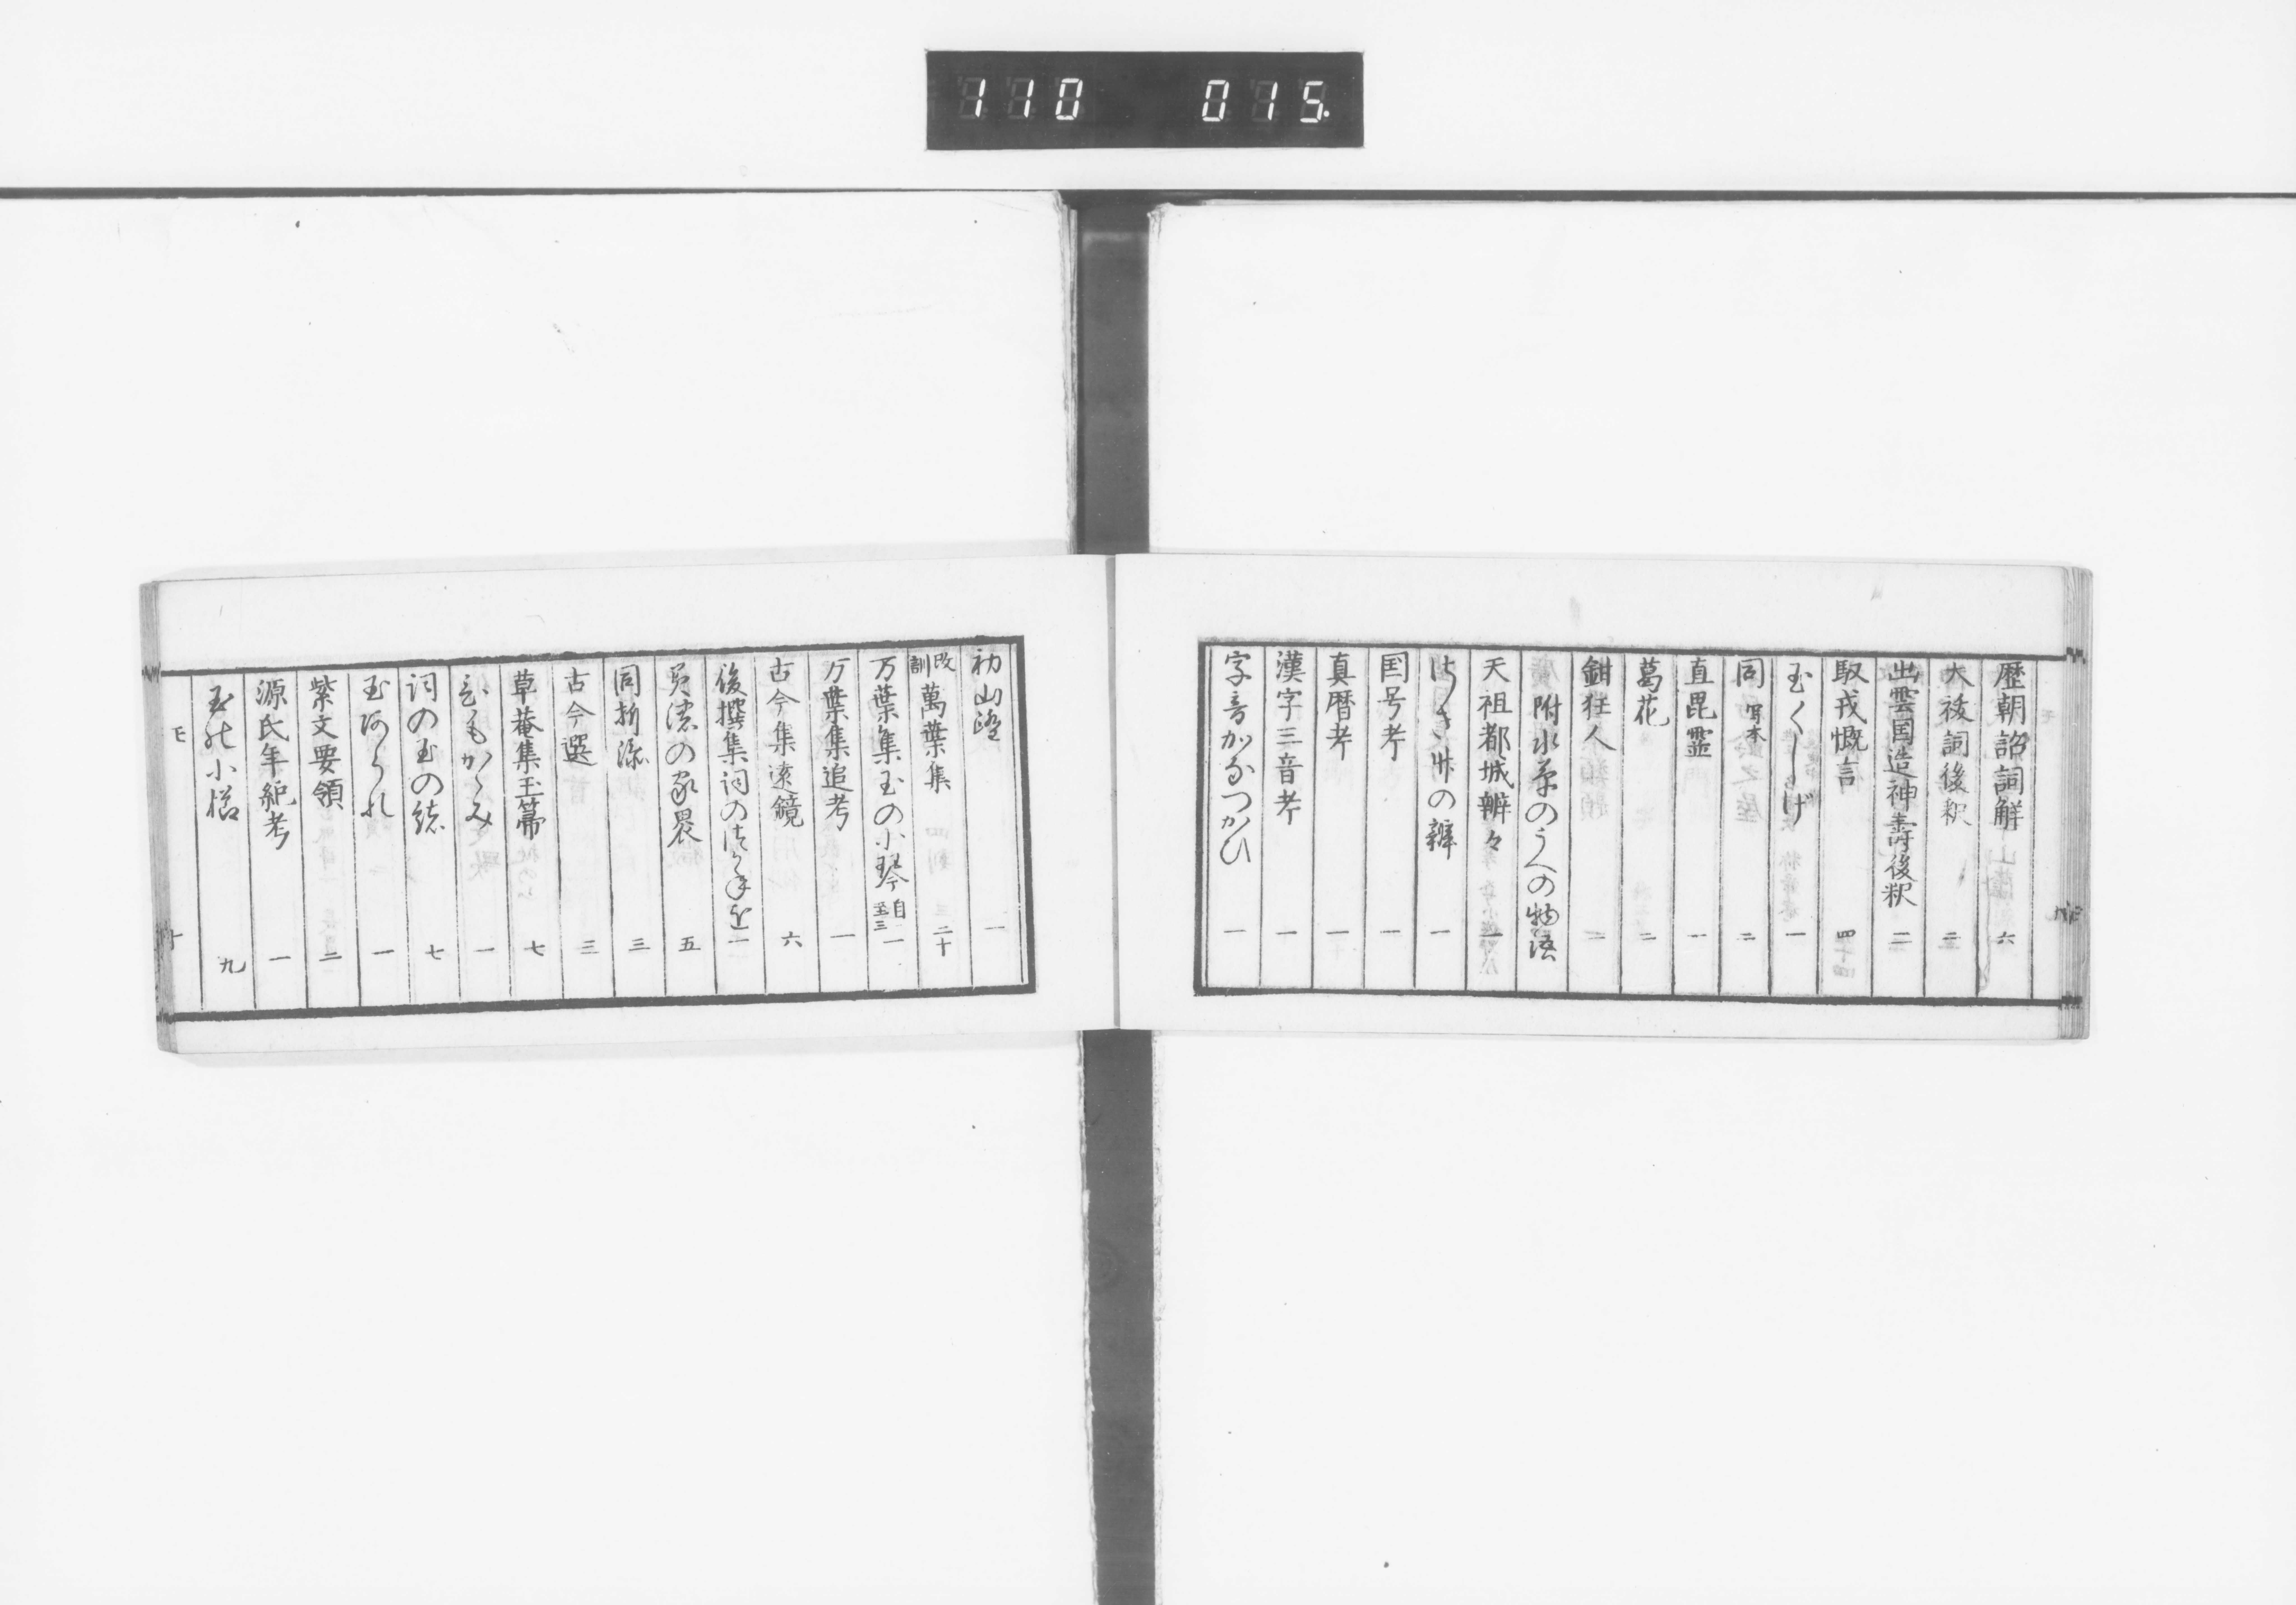 110 015
歴朝詔詞解 六
大祓詞後釈 二
出雲国造神壽後釈 二
馭戎慨言 四
玉くしげ 一
同 写本 二
直毘霊 一
葛花 二
鉗狂人 一
附水草のうへの物語
天祖都城辨々 一
けさ丼の辨 一
国号考 一
真暦考 一
漢字三音考 一
字音かなつかひ 一
初山踏 一
改訓萬葉集 二十
万葉集玉の小琴 自一至三
万葉集追考 一
古今集遠鏡 六
後撰集詞のつかね緒 一
美濃の家裹 五
同折添 三
古今選 三
草菴集玉箒 七
ひもかゝみ 一
詞の玉の緒 七
玉あられ 一
紫文要領 二
源氏年紀考 一
玉の小櫛 九
モ 十